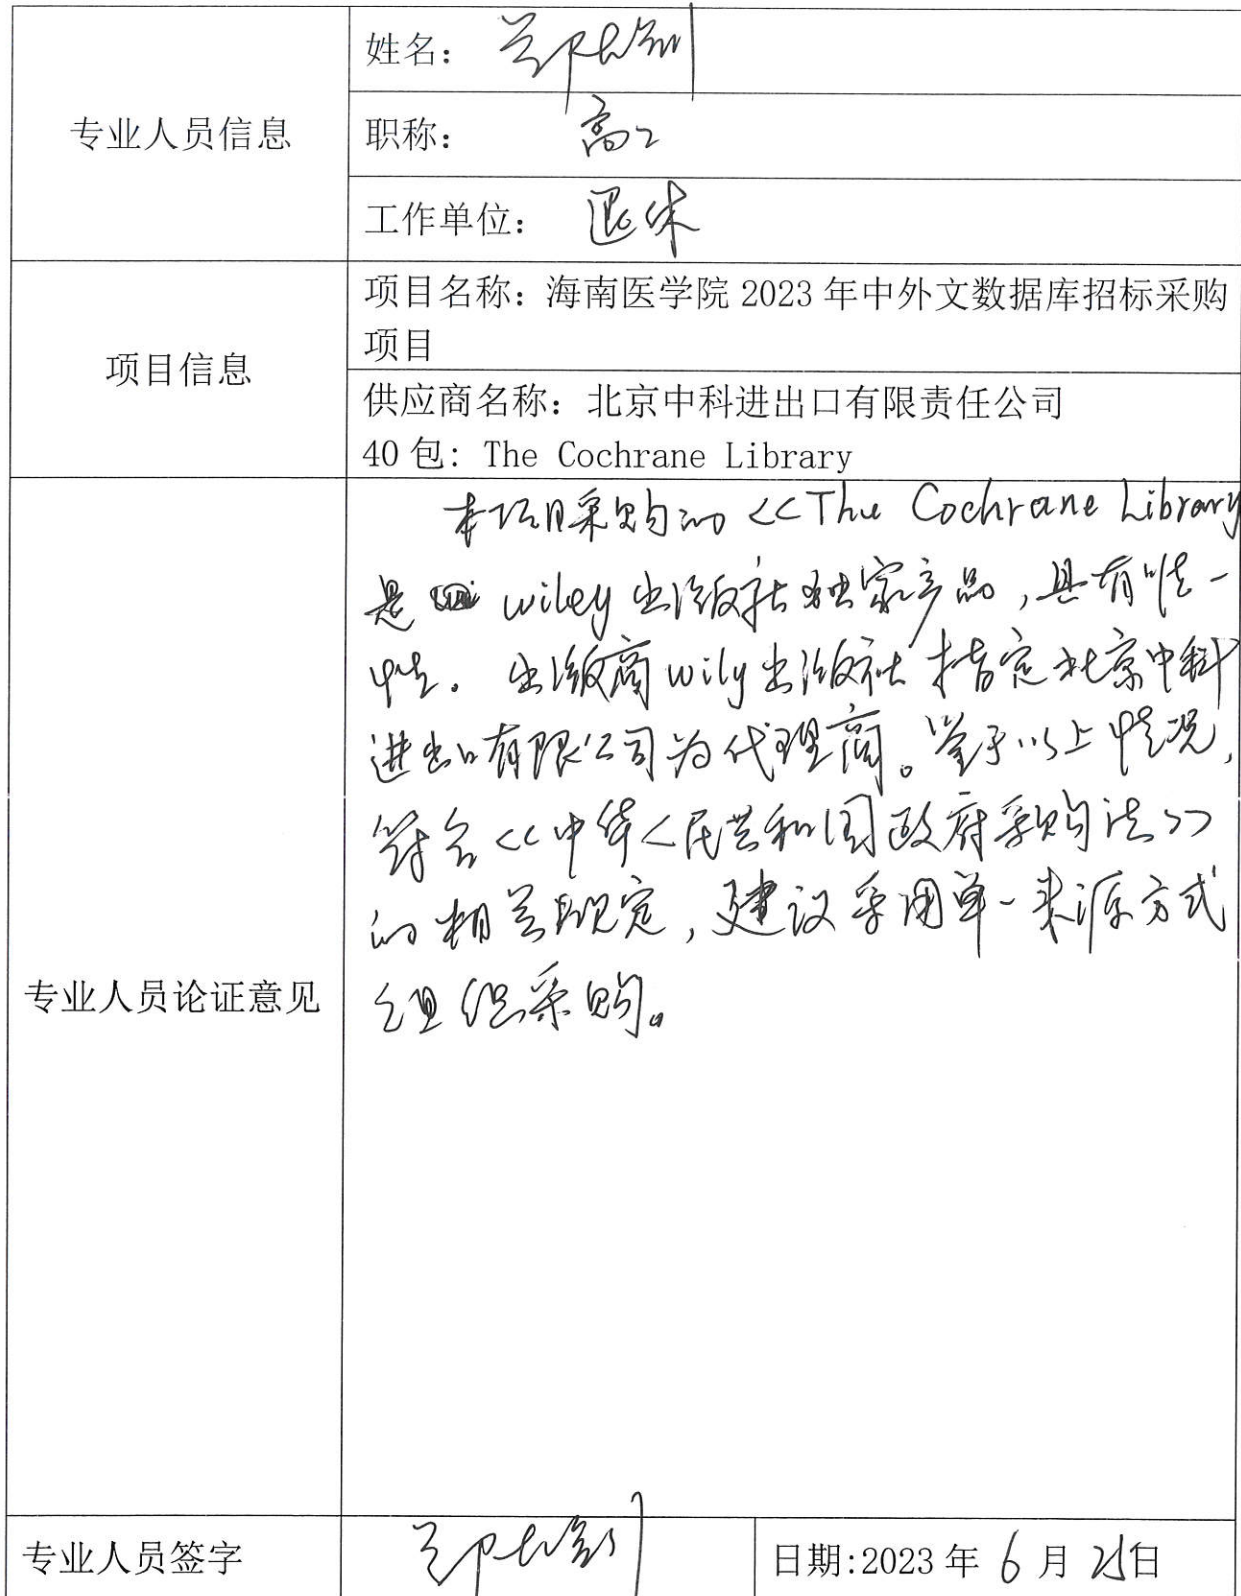 姓名：
专业人员信息
职称： 高工
工作单位： 退休
项目名称：海南医学院 2023 年中外文数据库招标采购
项目
项目信息
供应商名称：北京中科进出口有限责任公司
40 包：The Cochrane Library
本项目采购的<<The Cochrane Library
是 wiley 出版社独家产品，具有唯一
性。出版商wily出版社指定北京中科
进出口有限公司为代理商。鉴于以上情况，
符合<<中华人民共和国政府采购法>>
的相关规定，建议采用单一来源方式
组织采购。
专业人员论证意见
专业人员签字
日期:2023 年 6 月 25日